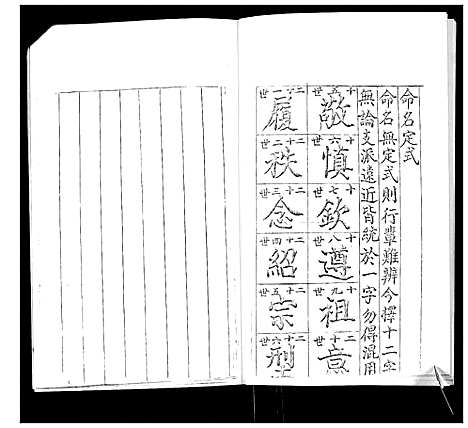 命名定式
命名無定式則行輩難辨今擇十二字
無論支派遠近皆統於一字勿得混用
十五世 敬
十六世 慎
十七世 欽
十八世 遵
十九世 祖
二十世 意
二十一世 履
二十二世 秩
二十三世 念
二十四世 紹
二十五世 宗
二十六世